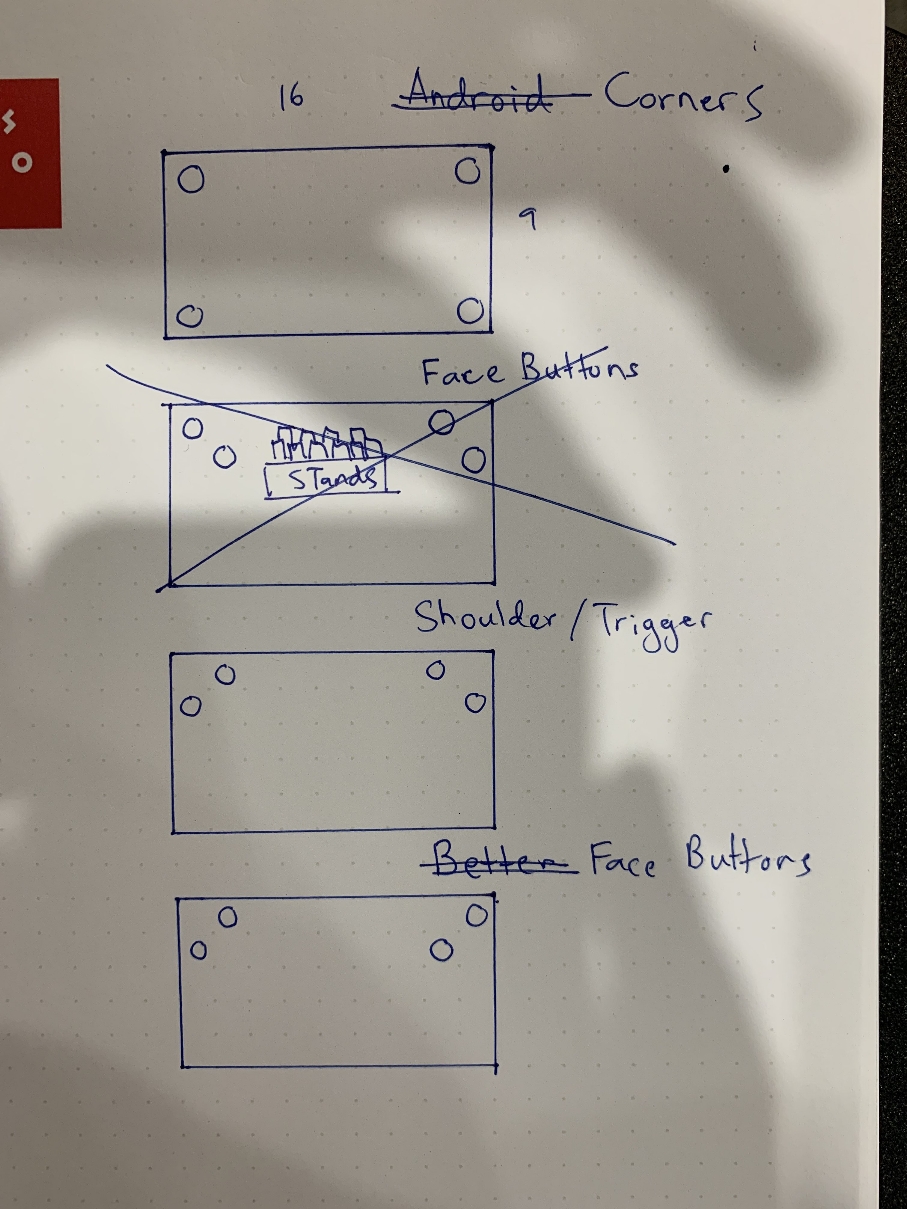 16 Android Corners
9
Face Buttons
STands
Shoulder / Trigger
Better Face Buttons
S
O